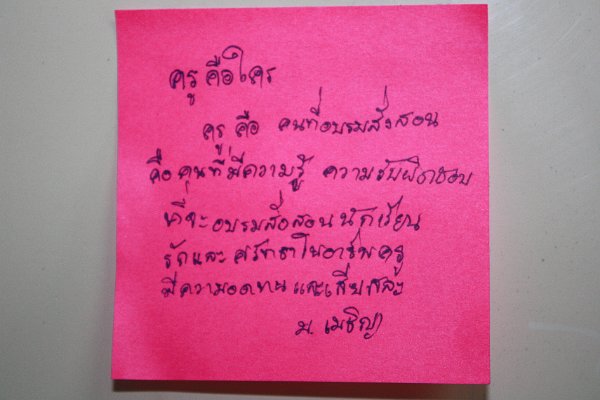 ครูคือใคร
ครู คือ คนที่อบรมสั่งสอน
คือ คนที่มีความรู้ ความรับผิดชอบ
ที่จะอบรมสั่งสอนนักเรียน
รักและศรัทธาในอาชีพครู
มีความอดทน และเสียสละ
ม. เมธิญา